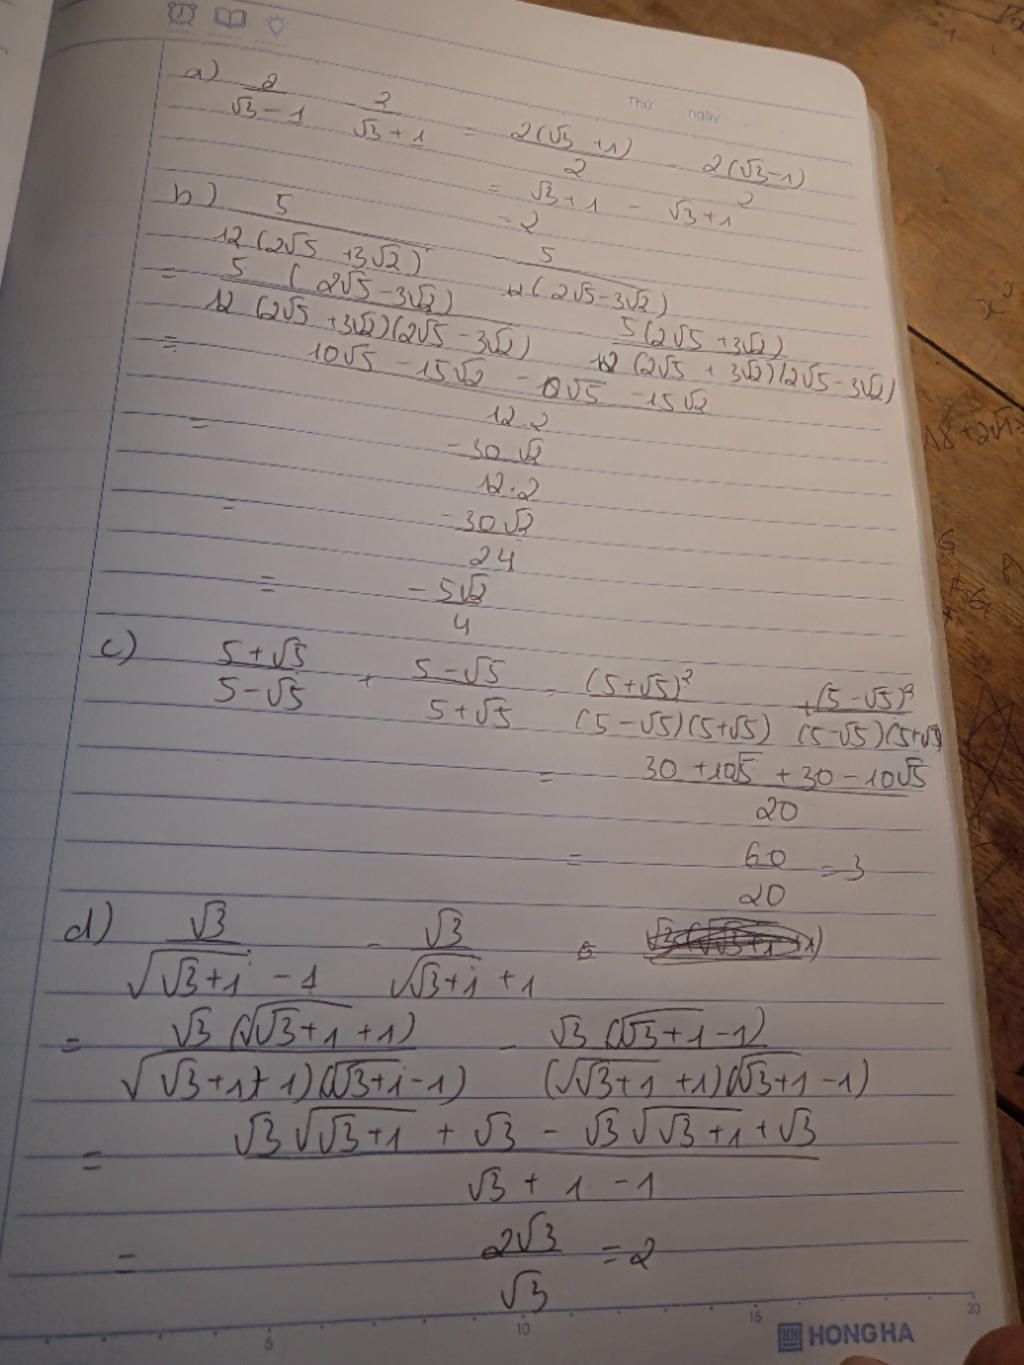 Thứ ngày
a) 2/(√3-1) - 2/(√3+1) = 2(√3+1)/2 - 2(√3-1)/2
= √3+1 - √3+1
= 2
b) 5/(12(2√5+3√2)) - 5/(12(2√5-3√2))
= 5(2√5-3√2)/(12(2√5+3√2)(2√5-3√2)) - 5(2√5+3√2)/(12(2√5+3√2)(2√5-3√2))
= (10√5-15√2-10√5-15√2)/(12.2)
= -30√2/(12.2)
= -30√2/24
= -5√2/4
c) (5+√5)/(5-√5) + (5-√5)/(5+√5) = (5+√5)²/((5-√5)(5+√5)) + (5-√5)²/((5-√5)(5+√5))
= (30+10√5+30-10√5)/20
= 60/20 = 3
d) √3/(√(√3+1)-1) - √3/(√(√3+1)+1)
= √3(√(√3+1)+1)/((√(√3+1)+1)(√(√3+1)-1)) - √3(√(√3+1)-1)/((√(√3+1)+1)(√(√3+1)-1))
= (√3√(√3+1)+√3-√3√(√3+1)+√3)/(√3+1-1)
= 2√3/√3 = 2
5 10 15 20
HONG HA